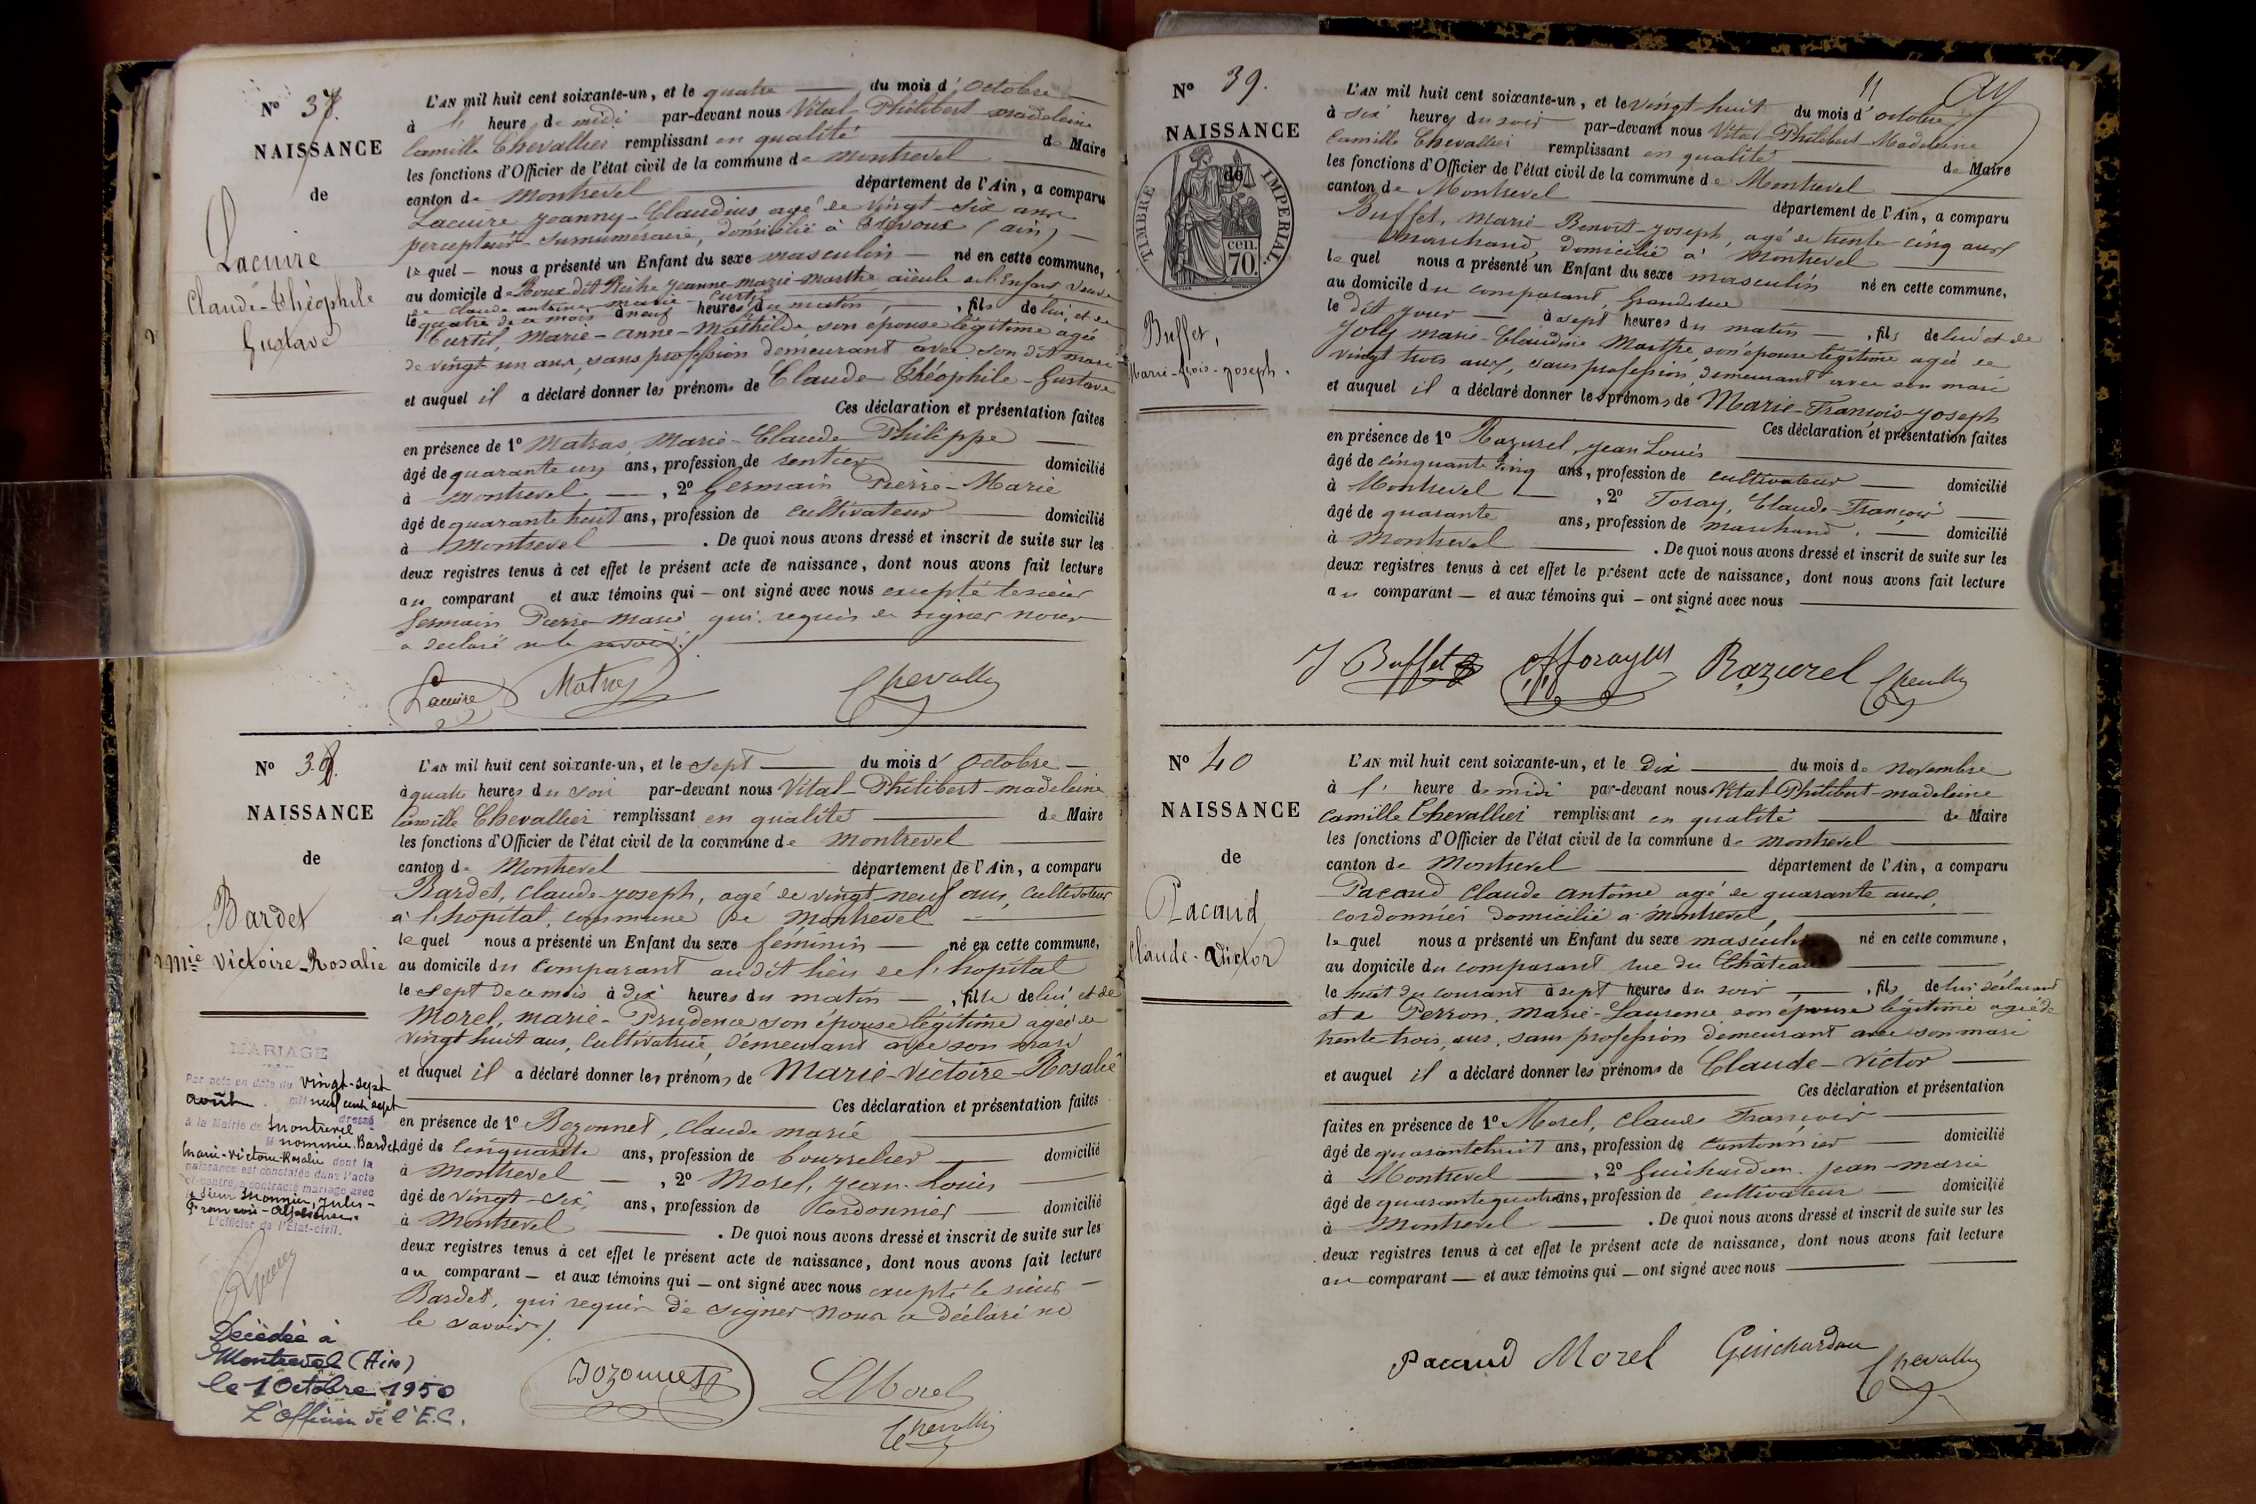 N° 37.
NAISSANCE
de
Lacuire
Claude-Théophile
Gustave
L'AN mil huit cent soixante-un, et le quatre du mois d'Octobre
à 1 heure de midi par-devant nous Vital-Philibert-madeleine
Camille Chevallier remplissant en qualité de Maire
les fonctions d'Officier de l'état civil de la commune de montrevel
canton de Montrevel département de l'Ain, a comparu
Lacuire Joanny-Claudius agé de vingt-six ans
percepteur surnuméraire, domicilié à Trévoux (ain)
le quel nous a présenté un Enfant du sexe masculin né en cette commune,
au domicile de Roux dit Reihe Jeanne-marie-marthe, aïeule de l'Enfant veuve
de Claude antoine-marie-Curtil
le quatre de ce mois à neuf heures du matin, fils de lui, et de
Curtil, Marie-anne-Mathilde son épouse légitime agée
de vingt un ans, sans profession demeurant avec son dit mari
et auquel il a déclaré donner les prénoms de Claude-Théophile-Gustave
Ces déclaration et présentation faites
en présence de 1° Matras, Marie-Claude-Philippe
âgé de quarante un ans, profession de rentier domicilié
à montrevel, 2° Germain Pierre-Marie
âgé de quarante huit ans, profession de cultivateur domicilié
à Montrevel. De quoi nous avons dressé et inscrit de suite sur les
deux registres tenus à cet effet le présent acte de naissance, dont nous avons fait lecture
au comparant et aux témoins qui ont signé avec nous excepté le sieur
Germain Pierre-marie qui requis de signer nous
a déclaré ne le savoir.
Lacuire Matras Chevallier
N° 38.
NAISSANCE
de
Bardet
Mie Victoire-Rosalie
L'AN mil huit cent soixante-un, et le sept du mois d'Octobre
à quatre heures du soir par-devant nous Vital-Philibert-madeleine
Camille Chevallier remplissant en qualité de Maire
les fonctions d'Officier de l'état civil de la commune de montrevel
canton de Montrevel département de l'Ain, a comparu
Bardet, Claude-Joseph, agé de vingt-neuf ans, Cultivateur
à l'hopital, commune de Montrevel
le quel nous a présenté un Enfant du sexe féminin né en cette commune,
au domicile du comparant au dit lieu de l'hopital
le sept de ce mois à dix heures du matin, fille de lui, et de
Morel, marie-Prudence son épouse légitime agée de
vingt huit ans, Cultivatrice, demeurant avec son mari
et auquel il a déclaré donner les prénoms de Marie-Victoire-Rosalie
Ces déclaration et présentation faites
en présence de 1° Bozonnet, Claude marie
âgé de cinquante ans, profession de bourrelier domicilié
à montrevel, 2° Morel, Jean-Louis
âgé de vingt-six ans, profession de Cordonnier domicilié
à Montrevel. De quoi nous avons dressé et inscrit de suite sur les
deux registres tenus à cet effet le présent acte de naissance, dont nous avons fait lecture
au comparant et aux témoins qui ont signé avec nous excepté le sieur
Bardet, qui requis de signer nous a déclaré ne
le savoir.
MARIAGE
Par acte en date du vingt-sept
août mil neuf cent sept
dressé
à la Mairie de Montrevel
la nommée Bardet
Marie-Victoire-Rosalie dont la
naissance est constatée dans l'acte
ci-contre, a contracté mariage avec
le sieur Monnier, Jules-
François-Alphonse.
L'officier de l'Etat-civil.
Décédée à
Montrevel (Ain)
le 1 Octobre 1950
L'Officier de l'E.C.
Bozonnet L Morel
Chevallier
N° 39.
NAISSANCE
de
TIMBRE IMPERIAL.
cen.
70.
Buffet,
Marie-fçois-Joseph.
L'AN mil huit cent soixante-un, et le vingt huit du mois d'octobre
à six heures du soir par-devant nous Vital-Philibert-Madeleine
Camille Chevallier remplissant en qualité de Maire
les fonctions d'Officier de l'état civil de la commune de Montrevel
canton de Montrevel département de l'Ain, a comparu
Buffet, Marie-Benoit-Joseph, agé de trente-cinq ans
Marchand, domicilié à Montrevel
le quel nous a présenté un Enfant du sexe masculin né en cette commune,
au domicile du comparant, Grande rue
le dit jour à sept heures du matin, fils de lui et de
Joly marie-Claudine Marthe, son épouse légitime agée de
vingt trois ans, sans profession, demeurant avec son mari
et auquel il a déclaré donner les prénoms de Marie-François-Joseph
Ces déclaration et présentation faites
en présence de 1° Razurel, Jean Louis
âgé de cinquante cinq ans, profession de cultivateur domicilié
à Montrevel, 2° Foray, Claude-François
âgé de quarante ans, profession de marchand. domicilié
à Montrevel. De quoi nous avons dressé et inscrit de suite sur les
deux registres tenus à cet effet le présent acte de naissance, dont nous avons fait lecture
au comparant et aux témoins qui ont signé avec nous
J Buffet Razurel Chevallier
N° 40
NAISSANCE
de
Pacaud
Claude-Victor
L'AN mil huit cent soixante-un, et le Dix du mois de novembre
à 1 heure de midi par-devant nous Vital-Philibert-madeleine
Camille Chevallier remplissant en qualité de Maire
les fonctions d'Officier de l'état civil de la commune de montrevel
canton de Montrevel département de l'Ain, a comparu
Pacaud Claude antoine agé de quarante ans,
cordonnier domicilié à montrevel,
le quel nous a présenté un Enfant du sexe masculin né en cette commune,
au domicile du comparant rue du Château
le huit du courant à sept heures du soir, fils de lui déclarant
et de Perron, Marie-Laurence son épouse légitime agée de
trente trois ans, sans profession demeurant avec son mari
et auquel il a déclaré donner les prénoms de Claude-Victor
Ces déclaration et présentation
faites en présence de 1° Morel, Claude François
âgé de quarante huit ans, profession de Cantonnier domicilié
à Montrevel, 2° Guichardan Jean-marie
âgé de quarante quatre ans, profession de cultivateur domicilié
à Montrevel. De quoi nous avons dressé et inscrit de suite sur les
deux registres tenus à cet effet le présent acte de naissance, dont nous avons fait lecture
au comparant et aux témoins qui ont signé avec nous
Pacaud Morel Guichardan
Chevallier